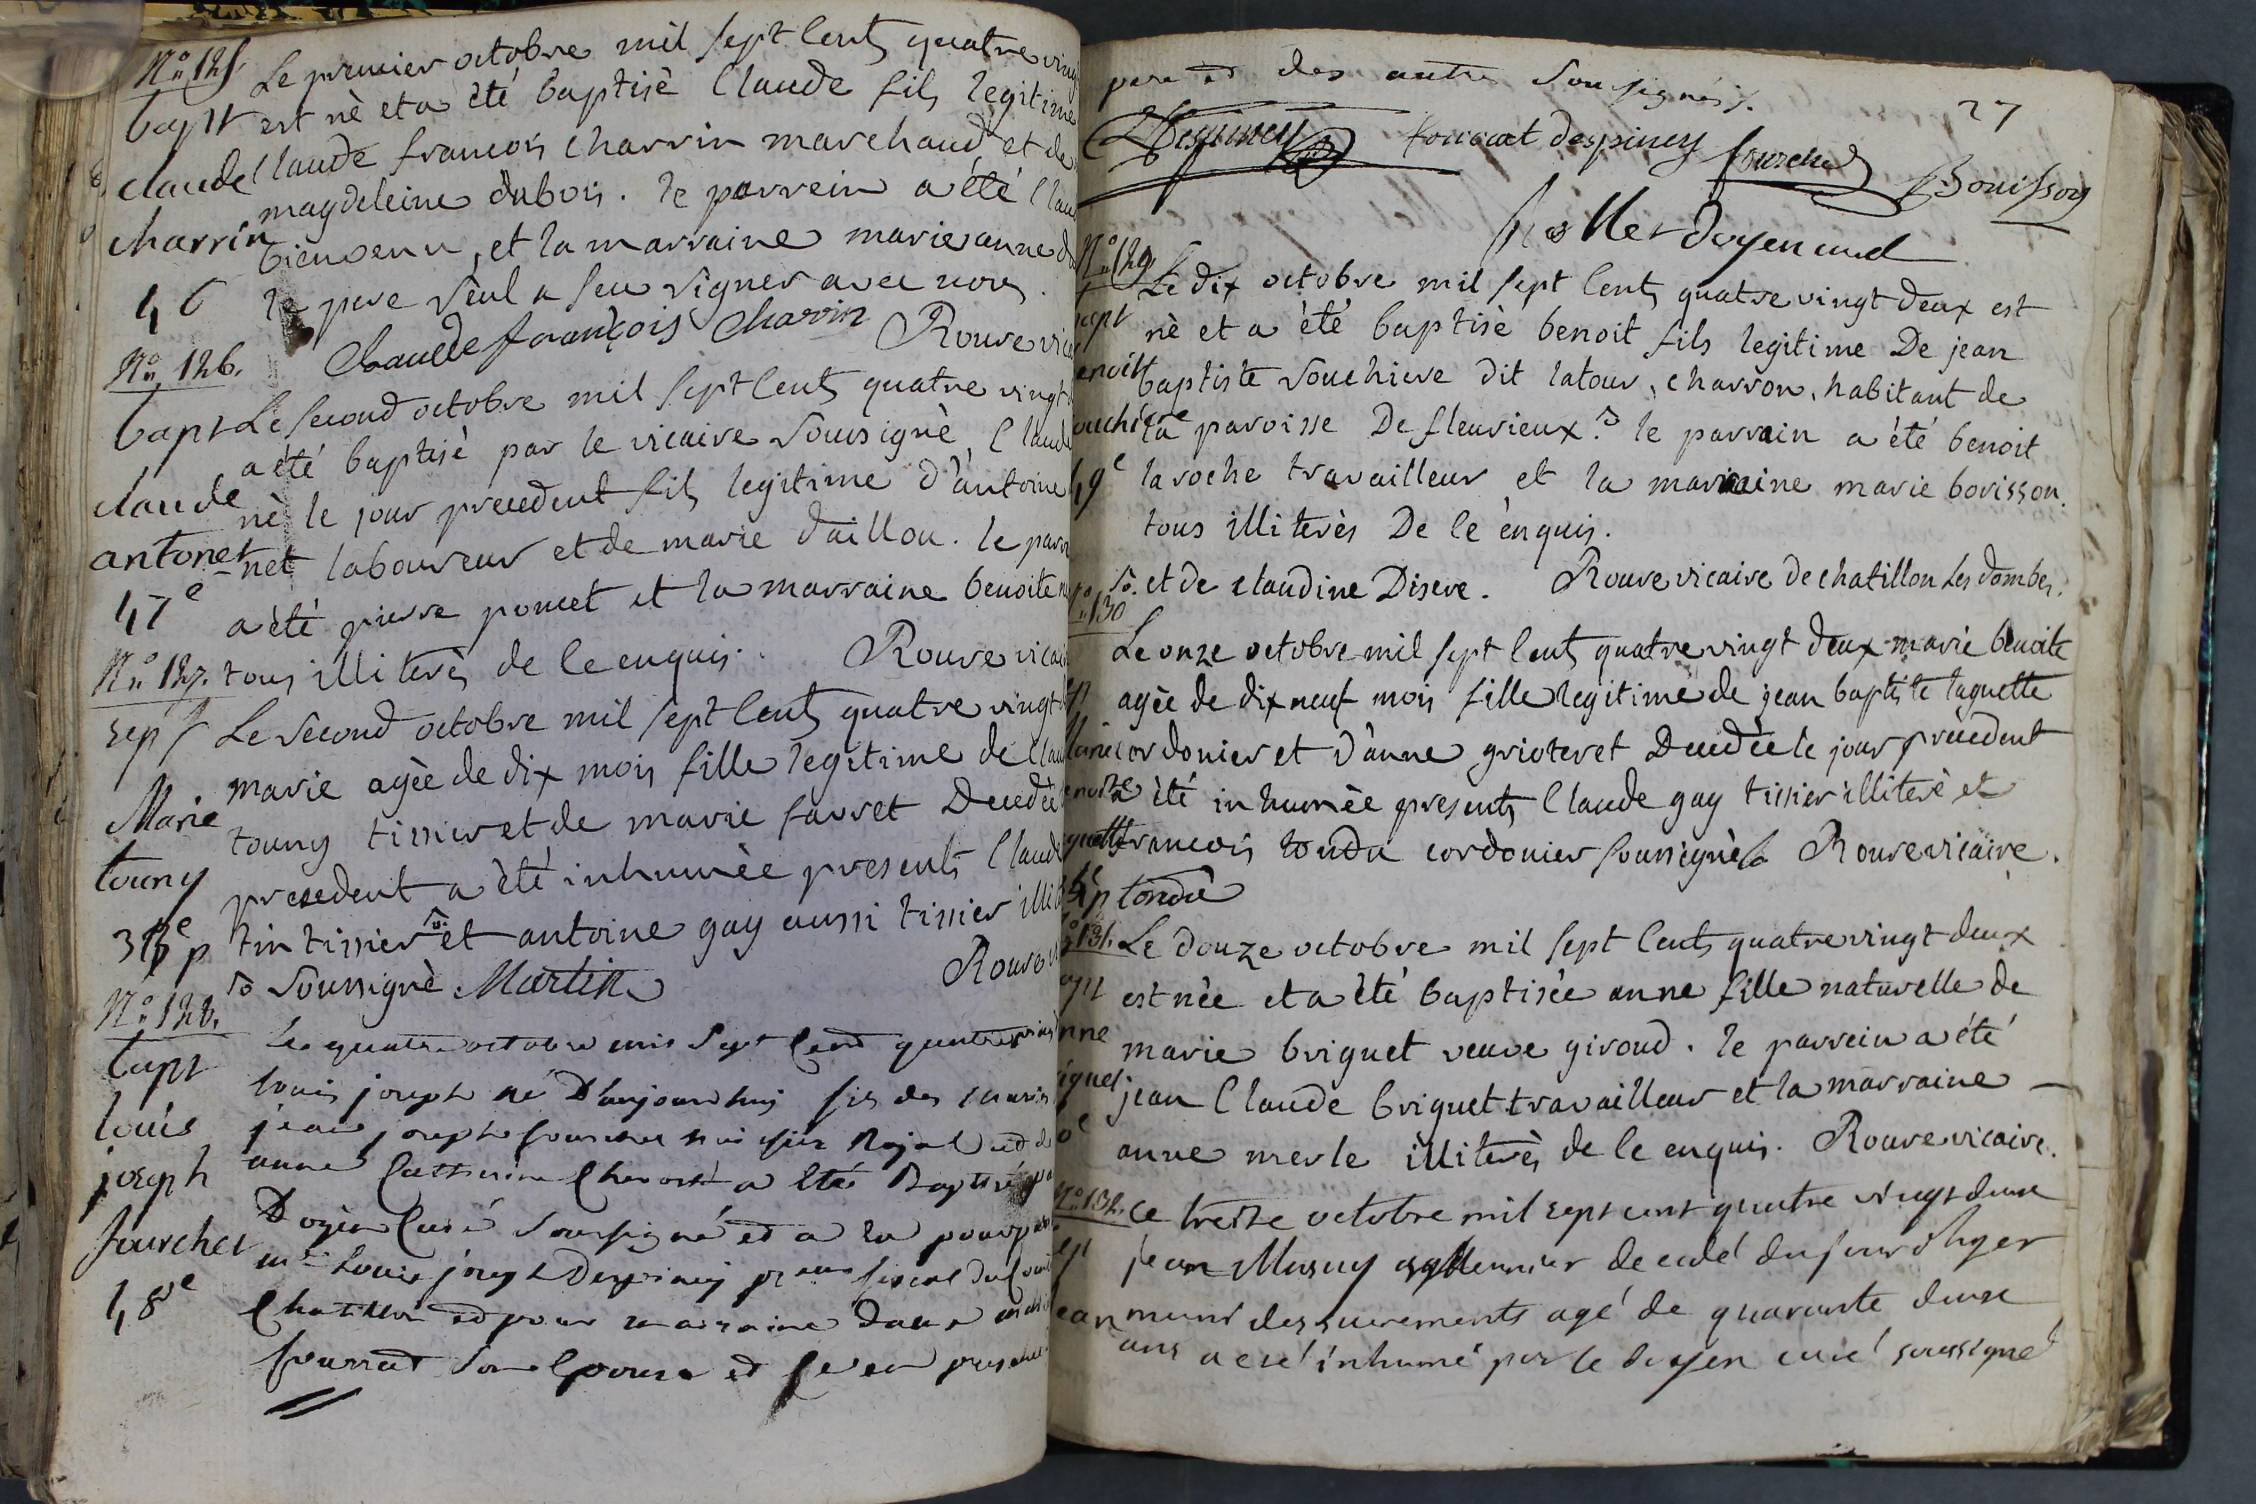 N.º 125.
Le premier octobre mil sept cents quatre vingt
bapt
est nè et a été baptisè Claude fils legitime
claude
Claude francois charrin marchand et de
charrin
magdeleine dubois. le parrein a été Claude
bienvenu, et la marraine marie anne
46
le pere seul a seu signer avec nous.
Claude françois Charrin Rouve vicaire
N.º 126.
bapt
Le second octobre mil sept cents quatre vingt
a été baptisè par le vicaire soussignè, Claude
claude
nè le jour precedent fils legitime d'antoine
antonet
net laboureur et de marie daillou. le parr
47e
a été pierre poncet et la marraine benoite
N.º 127.
tous illiterès de ce enquis. Rouve vicaire
sep
Le second octobre mil sept cents quatre vingt
marie agèe de dix mois fille legitime de Claude
Marie
touny tissier et de marie favret Decedèe
touny
precedent a été inhumèe presents Claude
38e p
tin tissier et antoine gay aussi tissier illit
soussignè Martin Rouve
N.º 128.
Le quatre octobre mil sept cent quatre vingt
bapt
louis joseph né D'aujourdhui fils des
louis
jean joseph fourchet huissier Royal et de
joseph
anne Catherine a été Baptisé
fourchet
Doyen Curé soussigné et a eu pour
louis joseph Despiney fiscal du
48e
Chatillon et pour maraine dame
son Epouse et
pere et des autres soussignés.
27
Despiney foucart despiney fourchet Bouisson
doyen curé
N.º 129
Le dix octobre mil sept cents quatre vingt deux est
bapt
nè et a été baptisè benoit fils legitime De jean
enoit
baptiste souchiere dit latour, charron, habitant de
ouchi
la paroisse De fleurieux. le parrain a été benoit
49e
laroche travailleur et la marraine marie borisson.
tous illiterès De ce enquis.
et de claudine Disere. Rouve vicaire de chatillon les dombes.
130
Le onze octobre mil sept cents quatre vingt deux marie benoite
agèe de dix neuf mois fille legitime de jean baptiste laguette
Marie
cordonier et d'anne grioteret Decedèe le jour prècedent
enoite
a été inhumèe presents Claude gay tissier illiterè et
guette
francois tondu cordonier soussignès Rouve vicaire.
tondu
131.
Le douze octobre mil sept cents quatre vingt deux
est nèe et a été baptisèe anne fille naturelle de
nne
marie briguet veuve giroud. le parrein a été
iguet
jean Claude briguet travailleur et la marraine
anne merle illiterès de ce enquis. Rouve vicaire.
N.º 132.
Ce treize octobre mil sept cent quatre vingt deux
jean Musuy decedé du jour d'hyer
ean
muni des sacrements agé de quarante deux
ans a été inhumé par le doyen curé soussigné